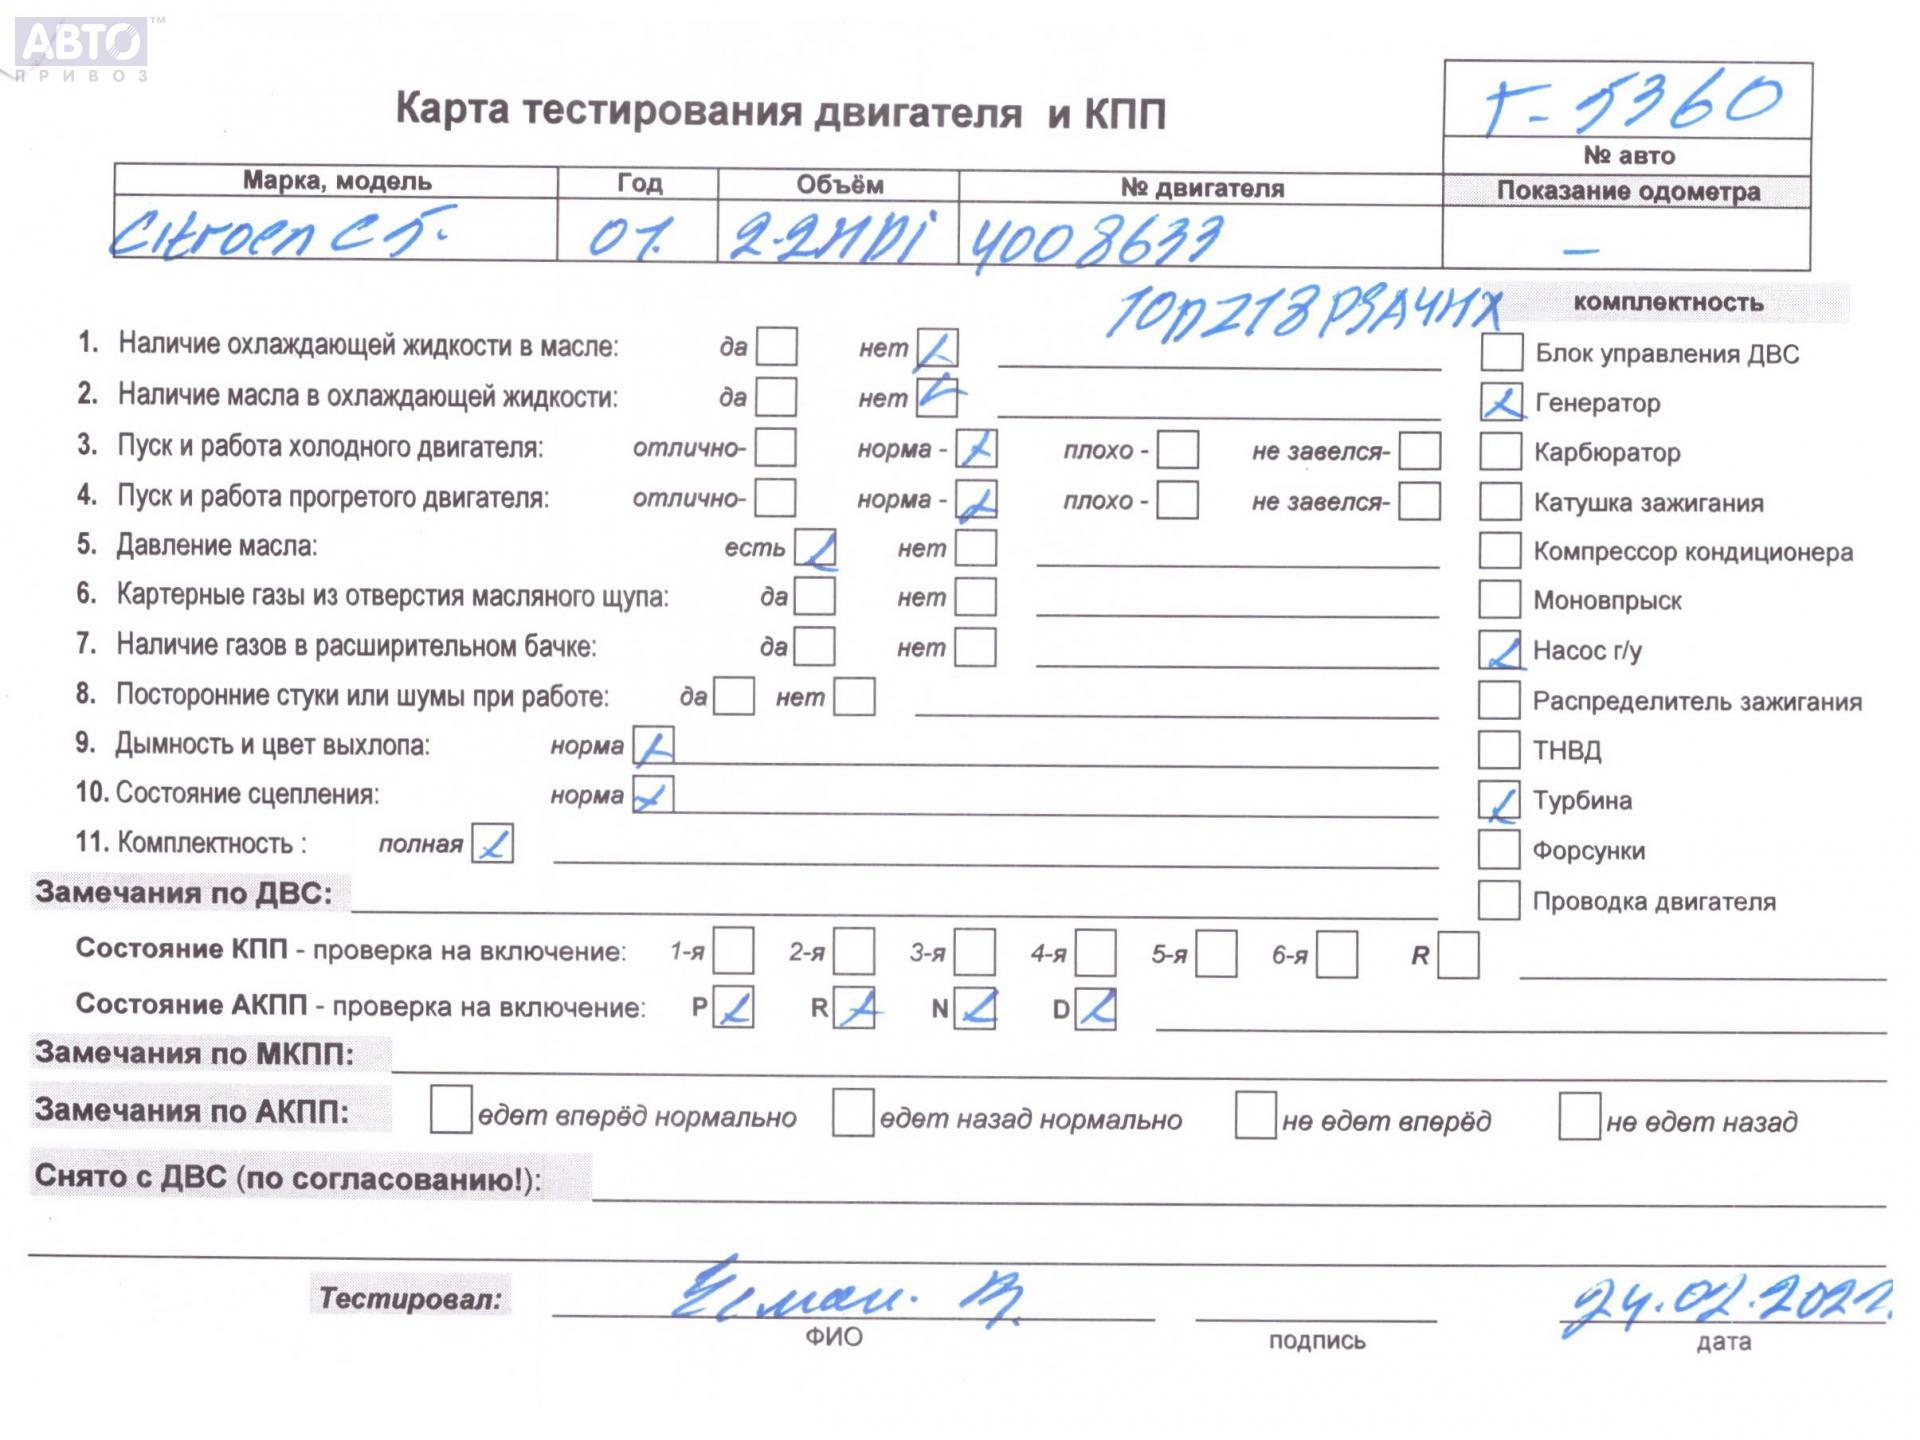 АВТО™
ПРИВОЗ
Карта тестирования двигателя и КПП
Т-5360
№ авто
Марка, модель Год Объём № двигателя Показание одометра
Citroen C5. 01. 2.2HDi 4008633 –
10DZ13 PSA4HX
комплектность
1. Наличие охлаждающей жидкости в масле: да нет Блок управления ДВС
2. Наличие масла в охлаждающей жидкости: да нет Генератор
3. Пуск и работа холодного двигателя: отлично- норма - плохо - не завелся- Карбюратор
4. Пуск и работа прогретого двигателя: отлично- норма - плохо - не завелся- Катушка зажигания
5. Давление масла: есть нет Компрессор кондиционера
6. Картерные газы из отверстия масляного щупа: да нет Моновпрыск
7. Наличие газов в расширительном бачке: да нет Насос г/у
8. Посторонние стуки или шумы при работе: да нет Распределитель зажигания
9. Дымность и цвет выхлопа: норма ТНВД
10. Состояние сцепления: норма Турбина
11. Комплектность : полная Форсунки
Замечания по ДВС: Проводка двигателя
Состояние КПП - проверка на включение: 1-я 2-я 3-я 4-я 5-я 6-я R
Состояние АКПП - проверка на включение: P R N D
Замечания по МКПП:
Замечания по АКПП: едет вперёд нормально едет назад нормально не едет вперёд не едет назад
Снято с ДВС (по согласованию!):
Тестировал: В. 24.02.2022.
ФИО подпись дата